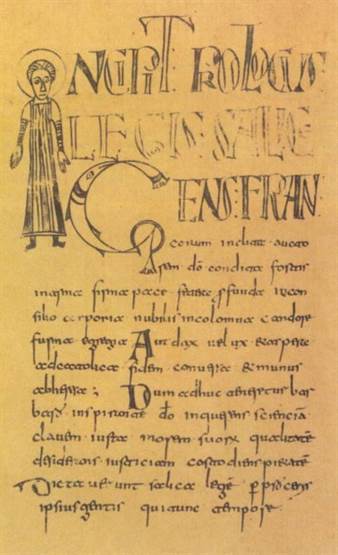 INCIPIT PROLOGUS
LEGIS SALICE
GENS FRAN
corum inclita auc
a dm condita fortis
in arma firma pace fetere profunda in con
silio corporia nobilis incolomna candore
forma egregia Audax velux et aspera
ad catolicam fidem conversa emunis
ab herese; Dum adhuc teneretur bar
bar inspirante do inquerens sciencia
clavem iuxta morem suorum qualitate
desiderans iusticiam costodiens pietate
Dictaverunt salica lege per proceris
ipsius gentis qui tunc tempore